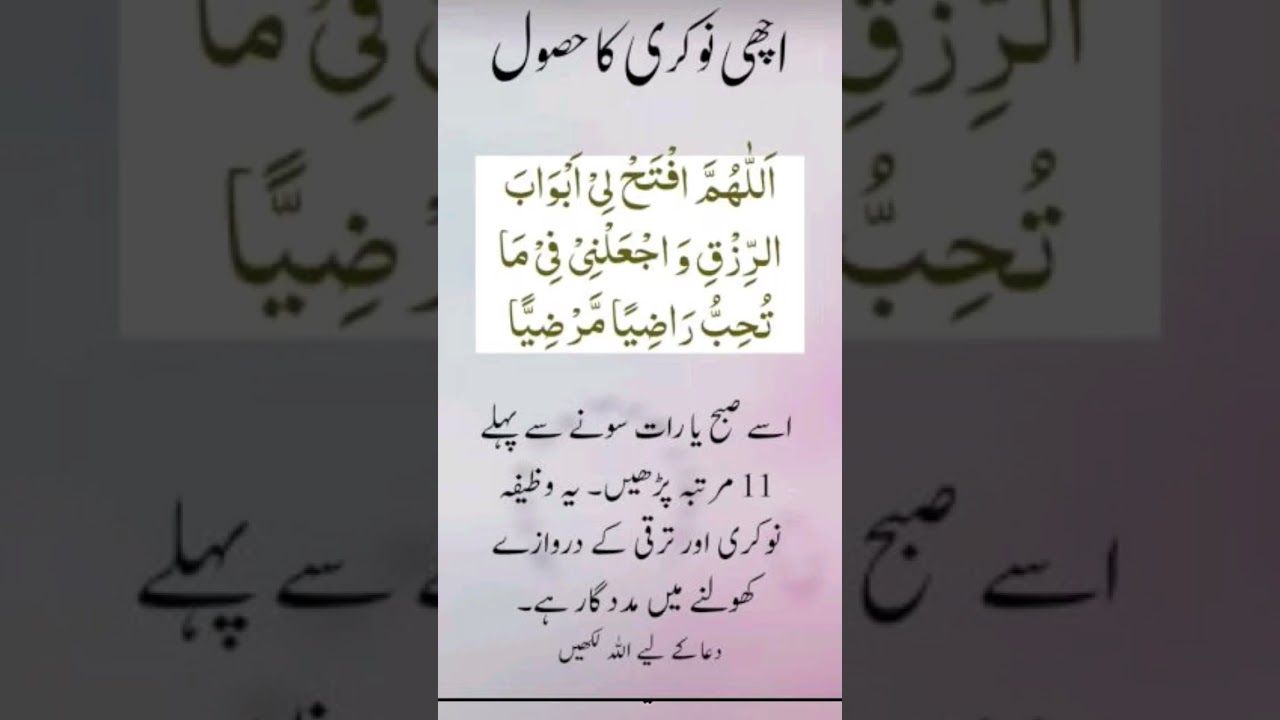 اچھی نوکری کا حصول
اَللّٰهُمَّ افْتَحْ لِیْ اَبْوَابَ
الرِّزْقِ وَ اجْعَلْنِیْ فِیْ مَا
تُحِبُّ رَاضِیًا مَّرْضِیًّا
اسے صبح یا رات سونے سے پہلے
11 مرتبہ پڑھیں۔ یہ وظیفہ
نوکری اور ترقی کے دروازے
کھولنے میں مددگار ہے۔
دعا کے لیے اللہ لکھیں